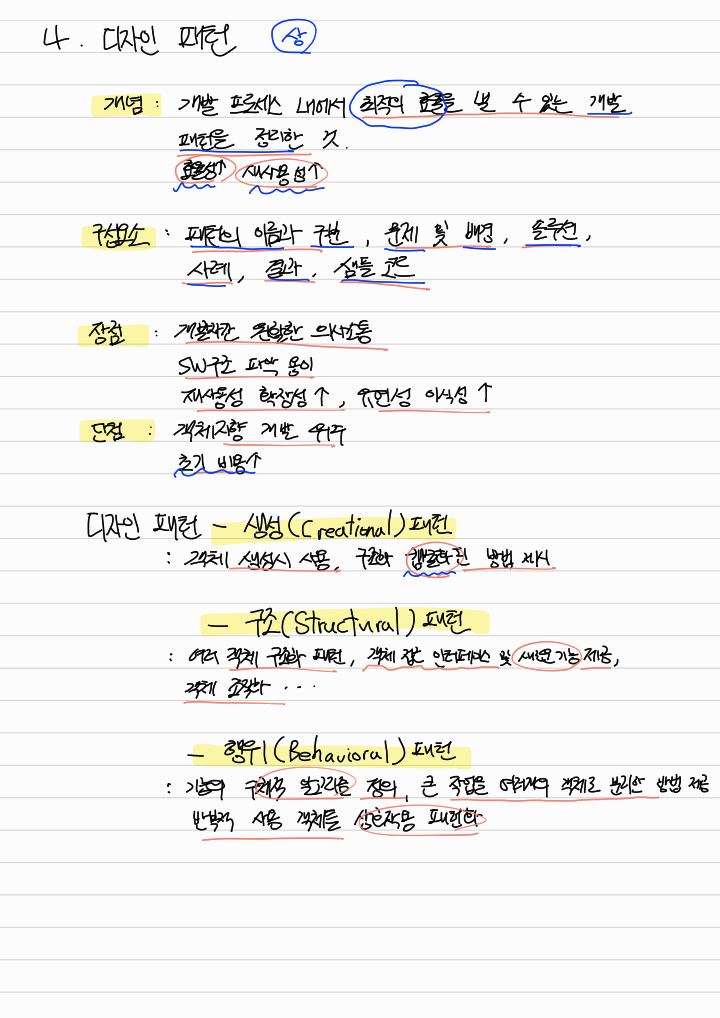 4. 디자인 패턴 상
개념 : 개발 프로세스 내에서 최적의 효율을 낼 수 있는 개발
패턴을 정리한 것.
효율성↑ 재사용성↑
구성요소 : 패턴의 이름과 구분, 문제 및 배경, 솔루션,
사례, 결과, 샘플 코드
장점 : 개발자간 원활한 의사소통
SW구조 파악 용이
재사용성 확장성↑, 유연성 이식성↑
단점 : 객체지향 개발 위주
초기 비용↑
디자인 패턴 - 생성(Creational) 패턴
: 객체 생성시 사용, 구조화 캡슐화된 방법 제시
- 구조(Structural) 패턴
: 여러 객체 구조화 패턴, 객체 접근 인터페이스 및 새로운 기능 제공,
객체 조직화 ...
- 행위(Behavioral) 패턴
: 기능의 구체적 알고리즘 정의, 큰 작업을 여러개의 객체로 분리한 방법 제공
반복적 사용 객체를 상호작용 패턴화